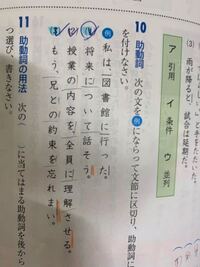 (3) 雨が降ると、試合は延期だ。
ア 引用 イ 条件 ウ 並列
10 助動詞 次の文を例にならって文節に区切り、助動詞に
を付けなさい。
例 私は図書館に行った。
(1) 将来について話そう。
(2) 授業の内容を全員に理解させる。
(3) もう、兄との約束を忘れまい。
11 助動詞の用法 次の( )に当てはまる助動詞を後から
つ選び、書きなさい。